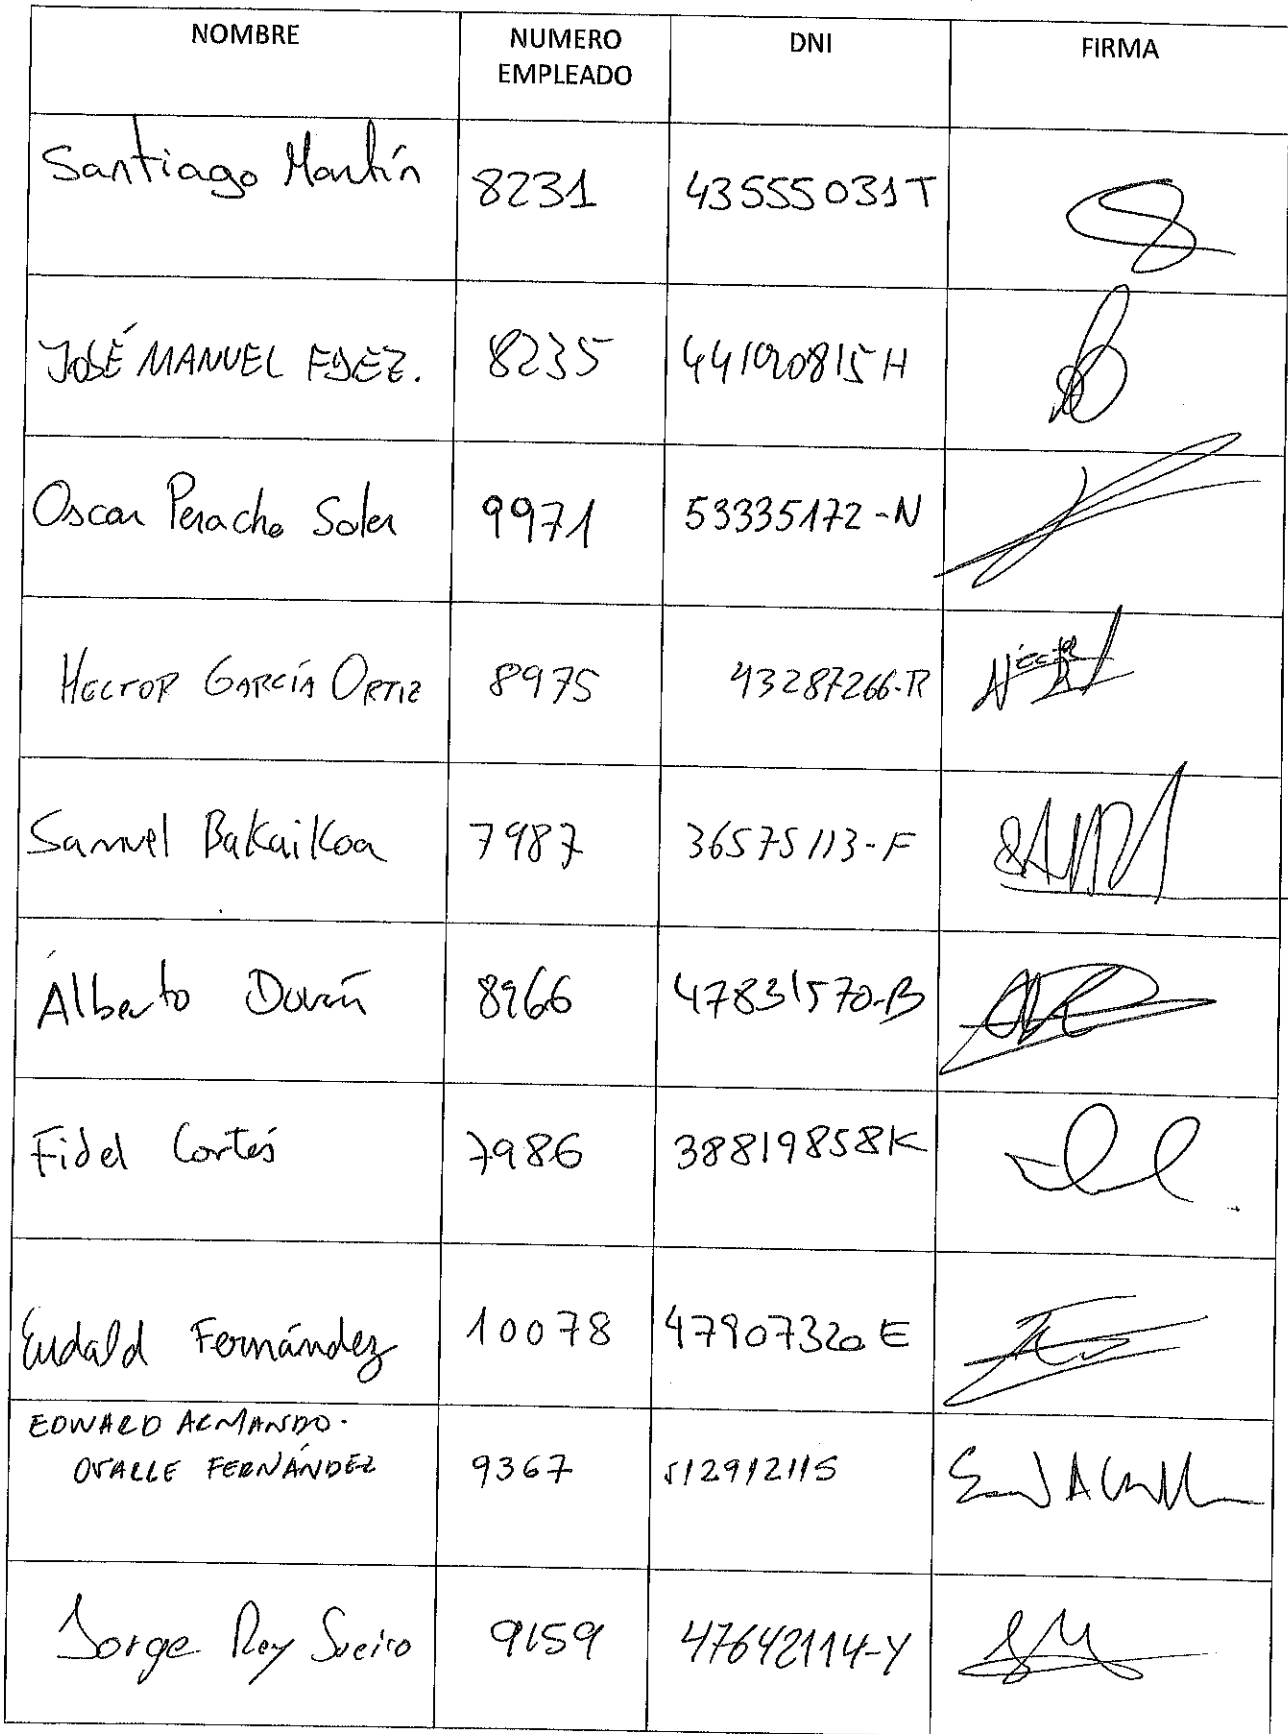 NOMBRE
NUMERO EMPLEADO
DNI
FIRMA
Santiago Martín 8231 43555031T
JOSÉ MANUEL FDEZ. 8235 44190815H
Oscar Peracho Soler 9971 53335172-N
HECTOR GARCÍA ORTIZ 8975 43287266-R
Samuel Bakaikoa 7987 36575113-F
Alberto Durán 8966 47831570-B
Fidel Cortés 7986 38819858K
Eudald Fernández 10078 47907320E
EDWARD ARMANDO.
OVALLE FERNÁNDEZ 9367
Jorge Rey Sueiro 9159 47642114-Y